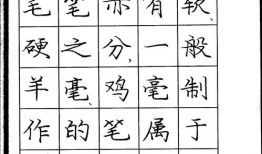 毛笔亦有软、
硬之分，一般
羊毫、鸡毫制
作的笔属于